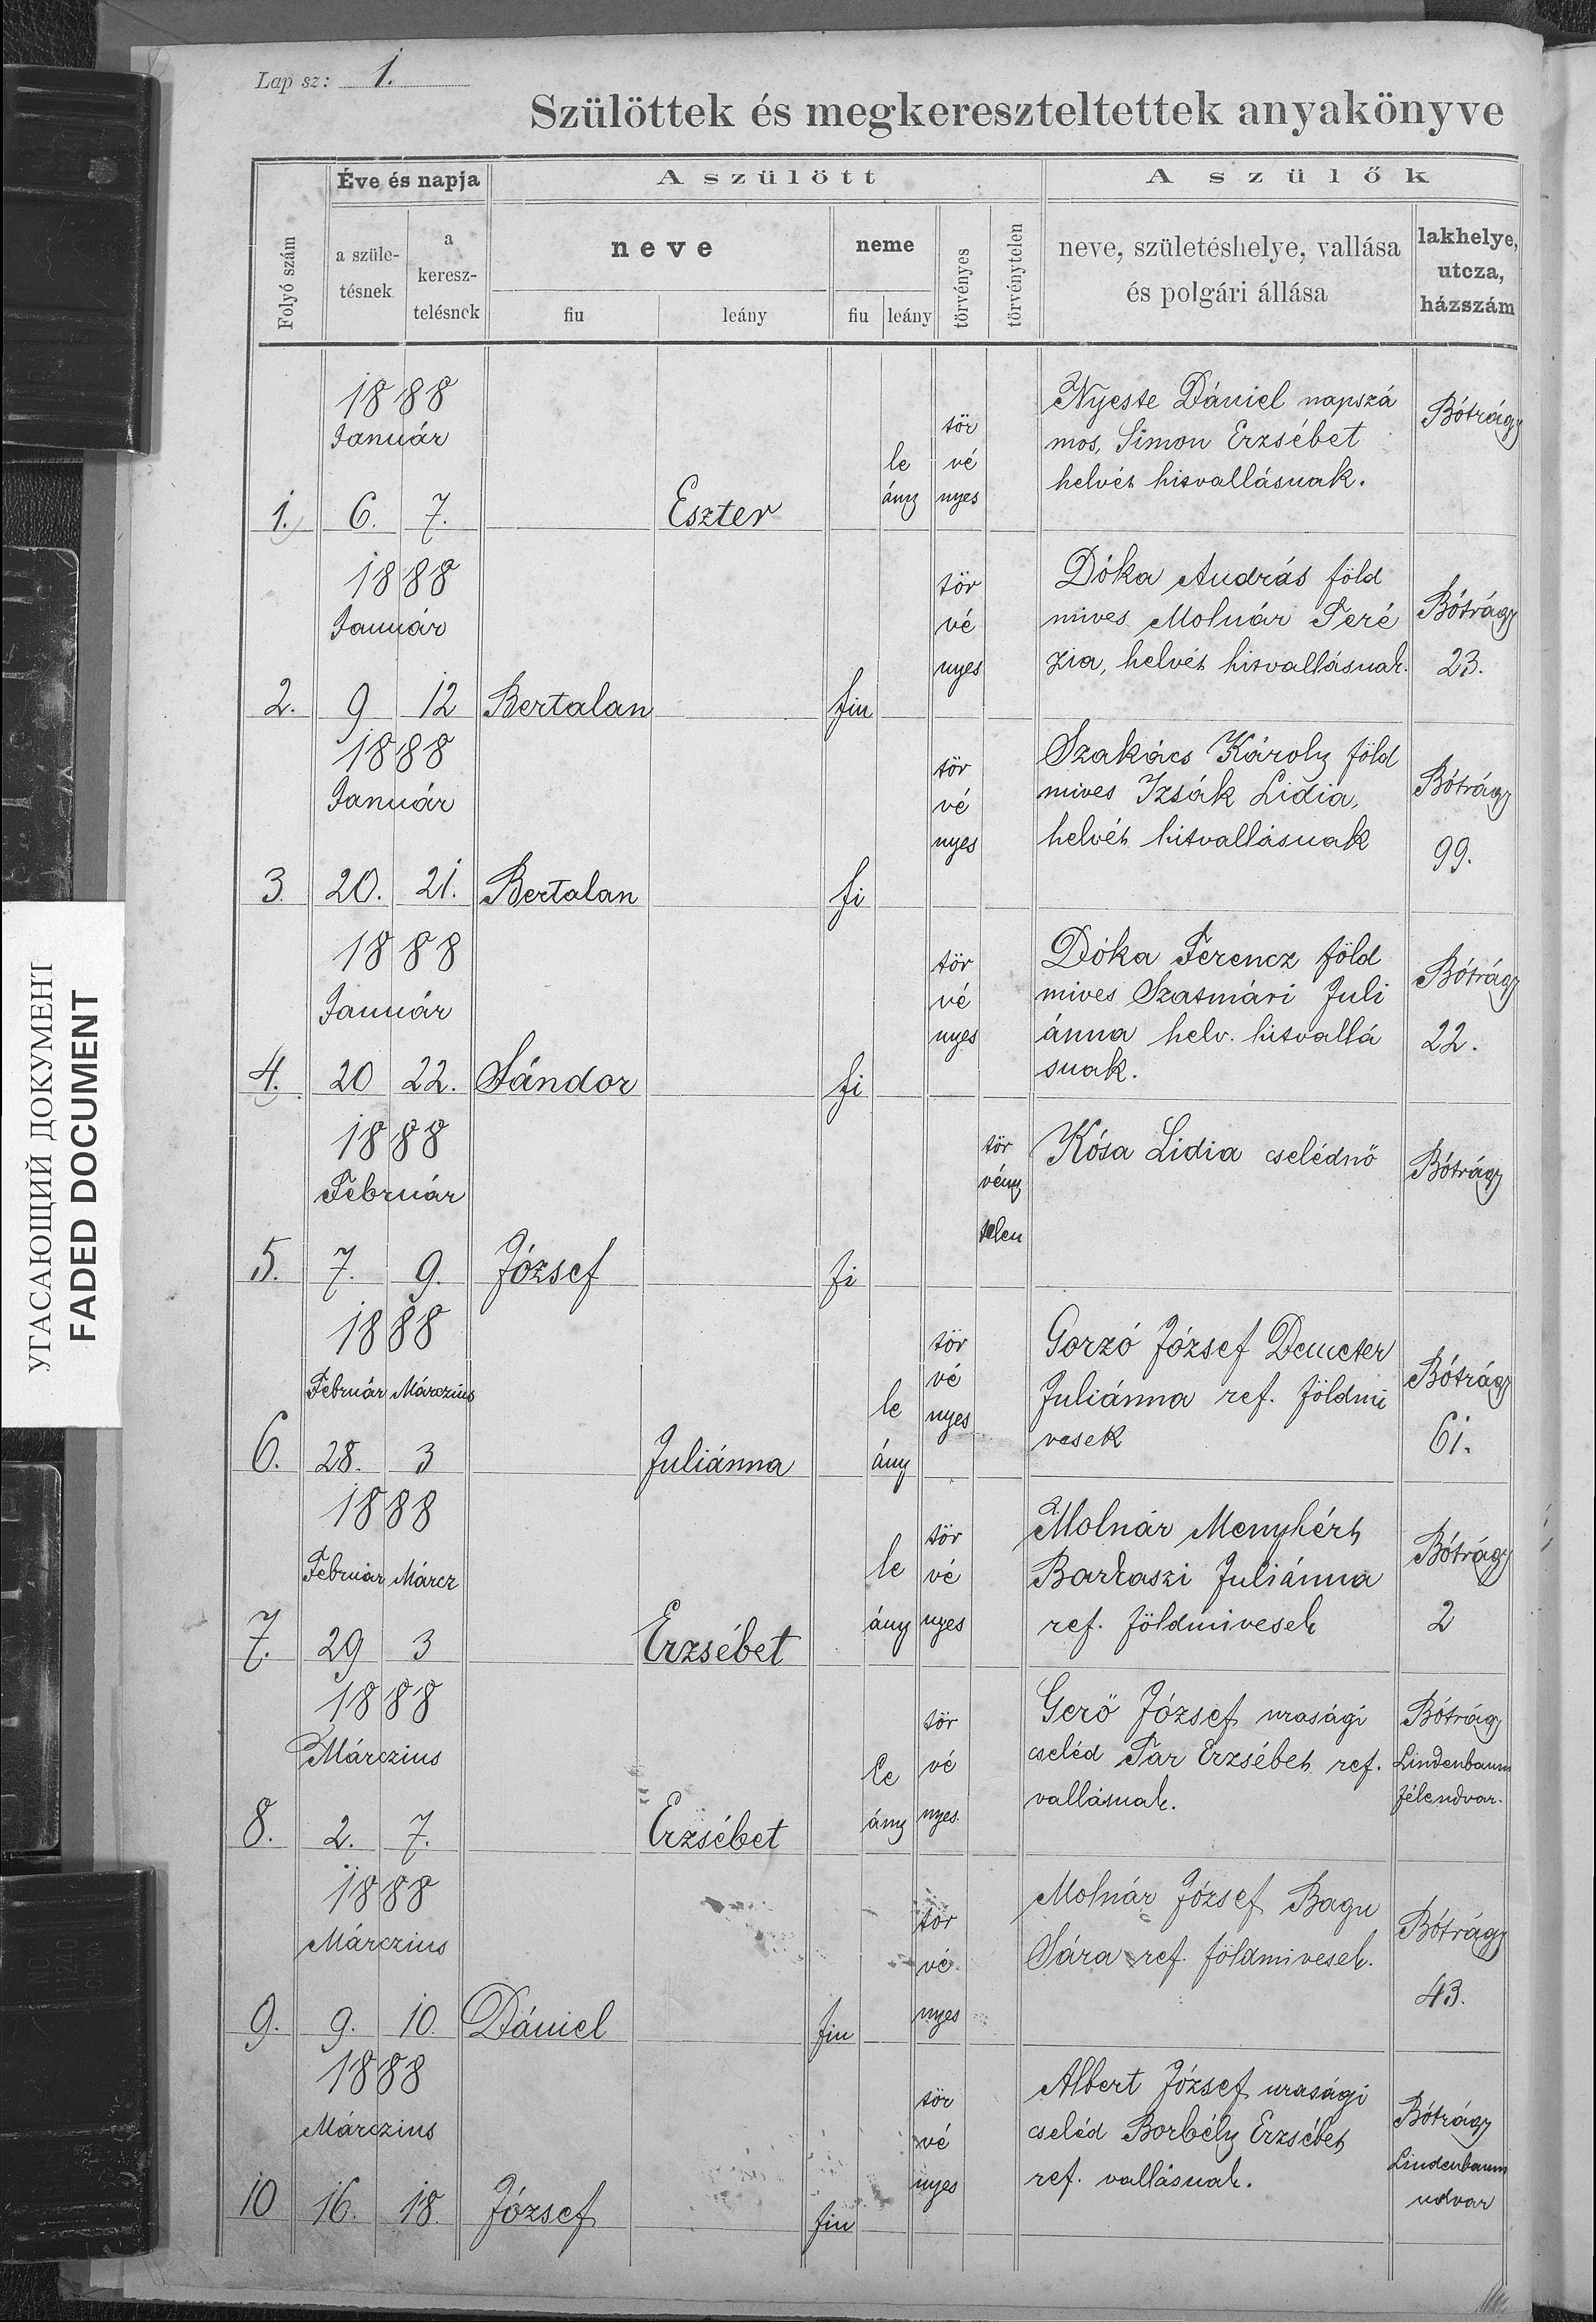 Lap sz: 1.
Szülöttek és megkereszteltettek anyakönyve
Folyó szám
Éve és napja
a szüle-
tésnek
a
keresz-
telésnek
A szülött
neve
fiu
leány
neme
fiu
leány
törvényes
törvénytelen
A szülők
neve, születéshelye, vallása
és polgári állása
lakhelye,
utcza,
házszám
1888
Január
1. 6. 7. Eszter
le
ány
tör
vé
nyes
Nyeste Dániel napszá
mos, Simon Erzsébet
helvét hitvallásuak.
Bótrágy
1888
Január
2. 9 12 Bertalan fiu
tör
vé
nyes
Dóka András föld
mives Molnár Teré
zia, helvét hitvallásuak.
Bótrágy
23.
1888
Január
3. 20. 21. Bertalan fi
tör
vé
nyes
Szakács Károly föld
mives Izsák Lidia,
helvét hitvallásuak
Bótrágy
99.
1888
Január
4. 20 22. Sándor fi
tör
vé
nyes
Dóka Ferencz föld
mives Szatmári Juli
ánna helv. hitvallá
suak.
Bótrágy
22.
1888
Február
5. 7. 9. József fi
tör
vény
telen
Kósa Lidia cselédnő
Bótrágy
1888
Február Márczius
6. 28. 3 Juliánna
le
ány
tör
vé
nyes
Gorzó József Demeter
Juliánna ref. földmi
vesek
Bótrágy
61.
1888
Február Márcz
7. 29 3 Erzsébet
le
ány
tör
vé
nyes
Molnár Menyhért
Barkaszi Juliánna
ref. földmivesek
Bótrágy
2
1888
Márczius
8. 2. 7. Erzsébet
le
ány
tör
vé
nyes
Gerő József urasági
cseléd Tar Erzsébet ref.
vallásuak.
Bótrágy
Lindenbaum
1888
Márczius
9. 9. 10. Dániel fiu
tör
vé
nyes
Molnár József Bagu
Sára ref. földmivesek.
Bótrágy
43.
1888
Márczius
10 16. 18. József fiu
tör
vé
nyes
Albert József urasági
cseléd Borbély Erzsébet
ref. vallásuak.
Bótrágy
Lindenbaum
udvar
УГАСАЮЩИЙ ДОКУМЕНТ
FADED DOCUMENT